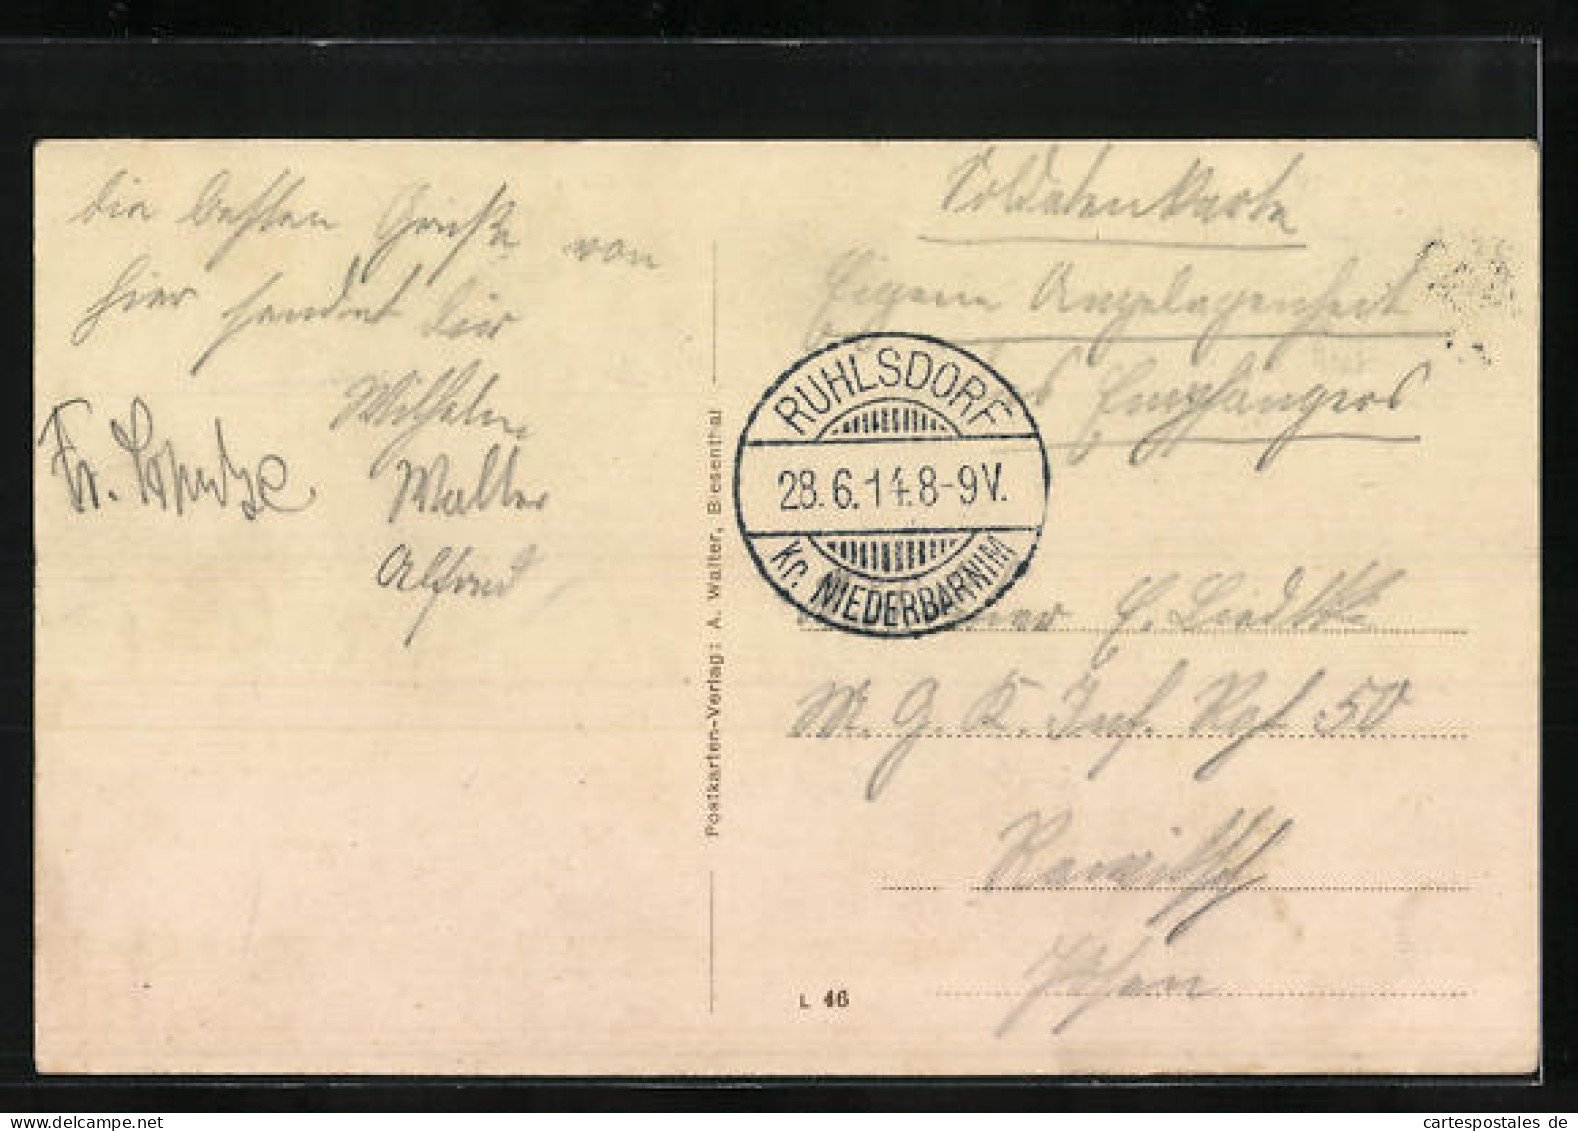 Die besten Grüße von
hier sendet dir
Wilhelm
Walter
Alfred
Fr.
Postkarten-Verlag: A. Walter, Biesenthal
Soldatenkarte
Eigene Angelegenheit
des Empfängers
RUHLSDORF
28.6.14.8-9V.
Kr. NIEDERBARNIM
E. Liedtke
M. G. K. Inf. Rgt 50
Rawitsch
Posen
L 46
cartespostales de